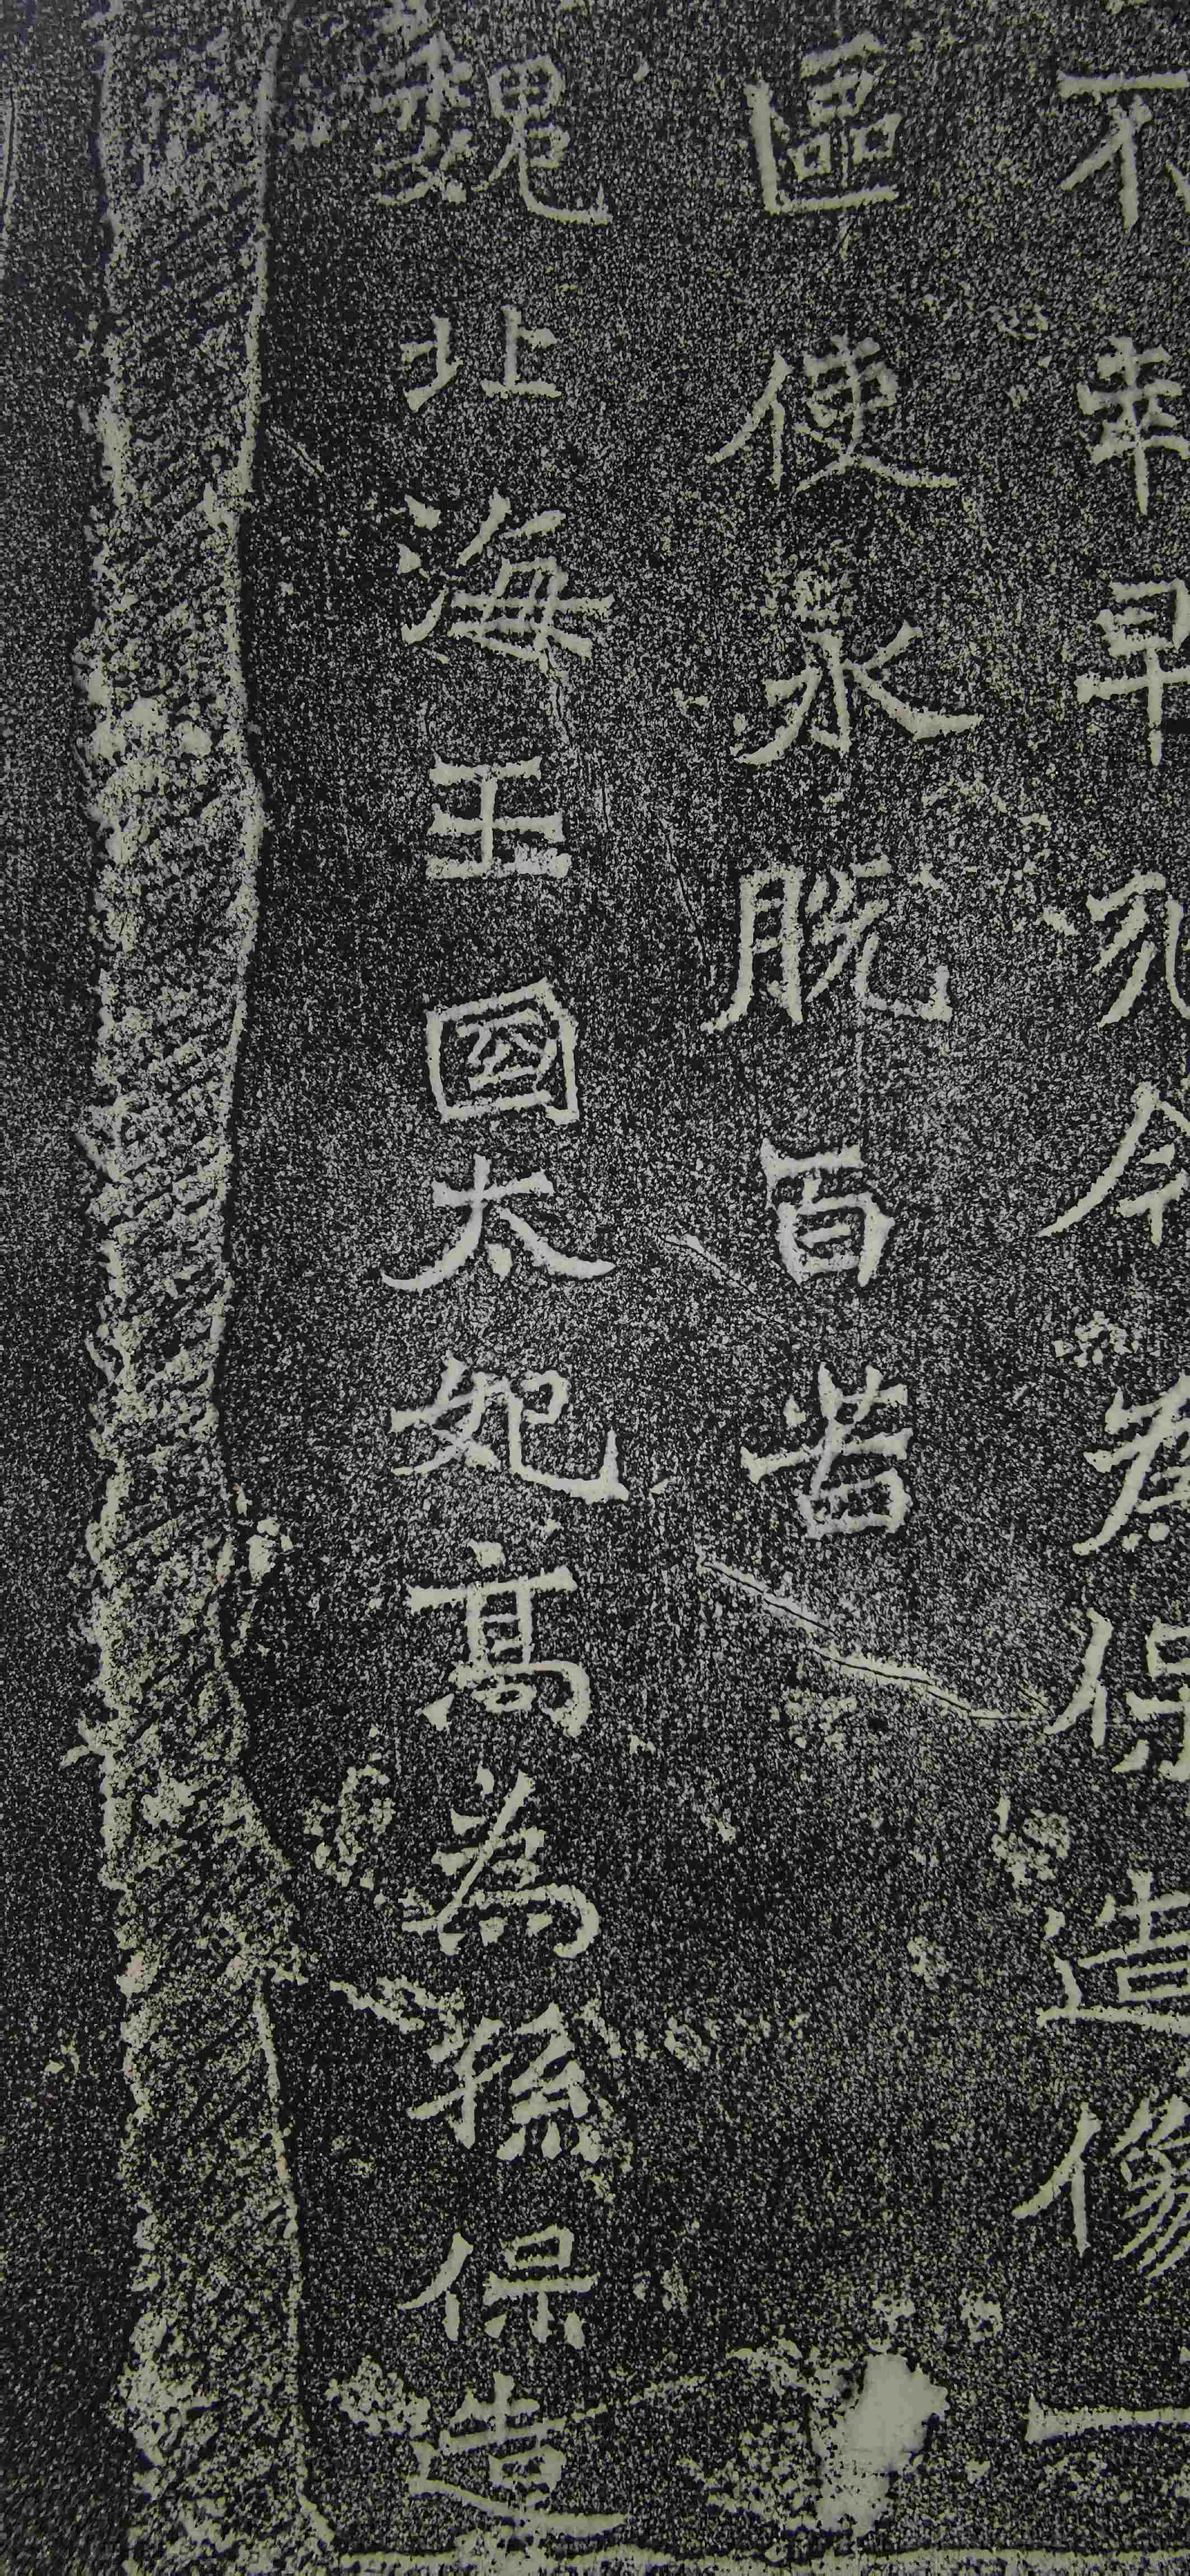 不幸早死今為保造像一
區使永脱百苦
魏北海王國太妃高為孫保造